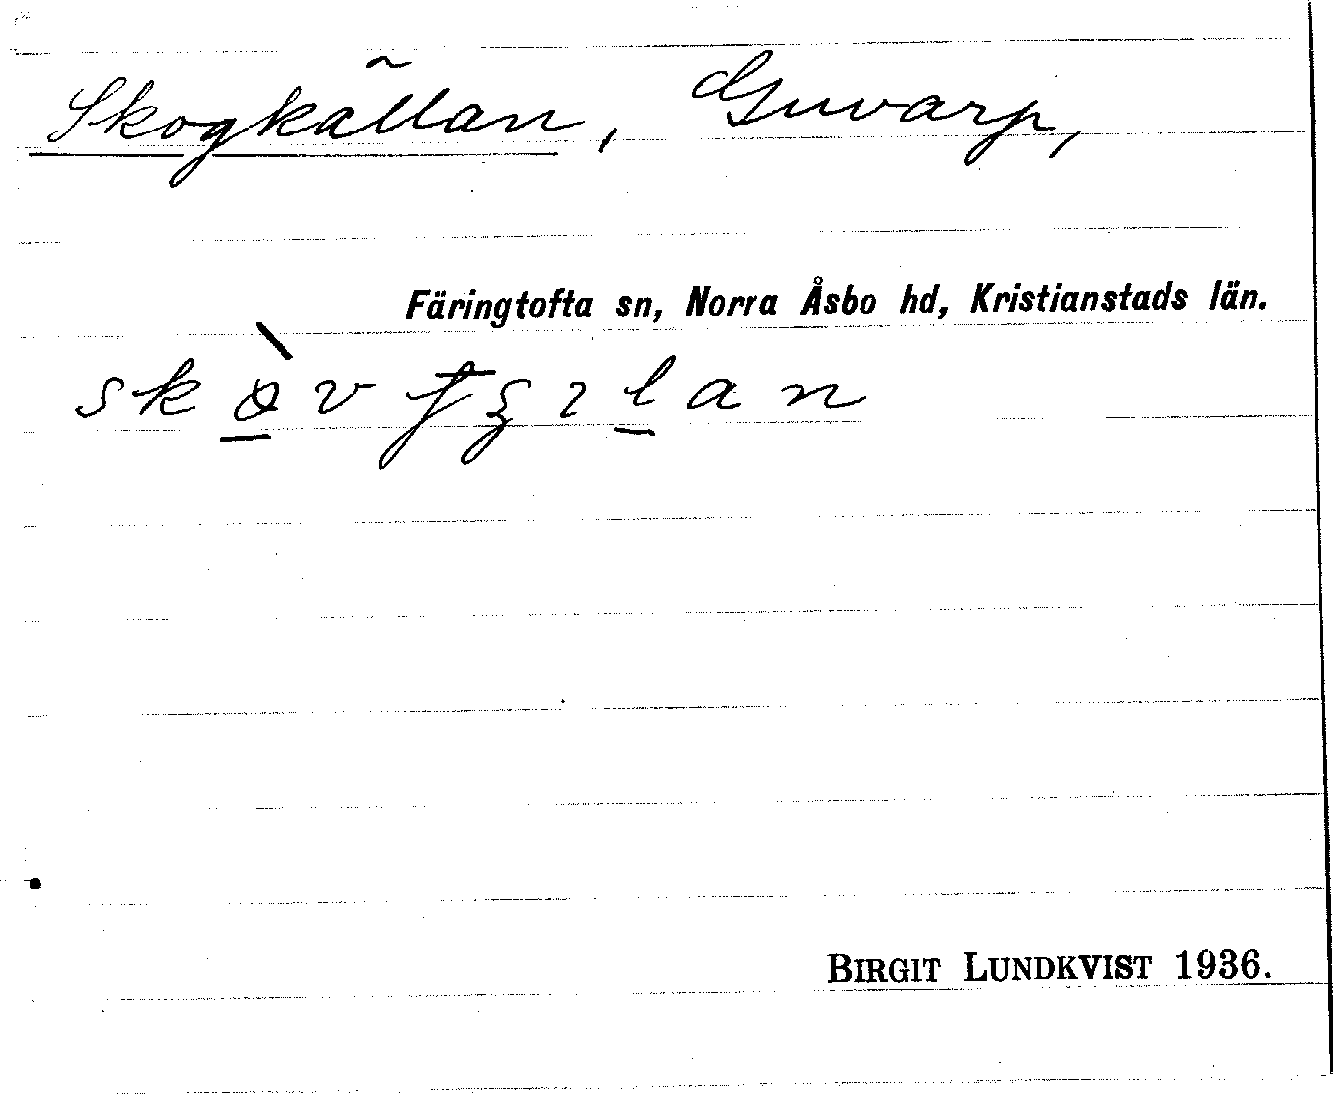 Skogkällan, Guvarp,
Färingtofta sn, Norra Åsbo hd, Kristianstads län.
BIRGIT LUNDKVIST 1936.